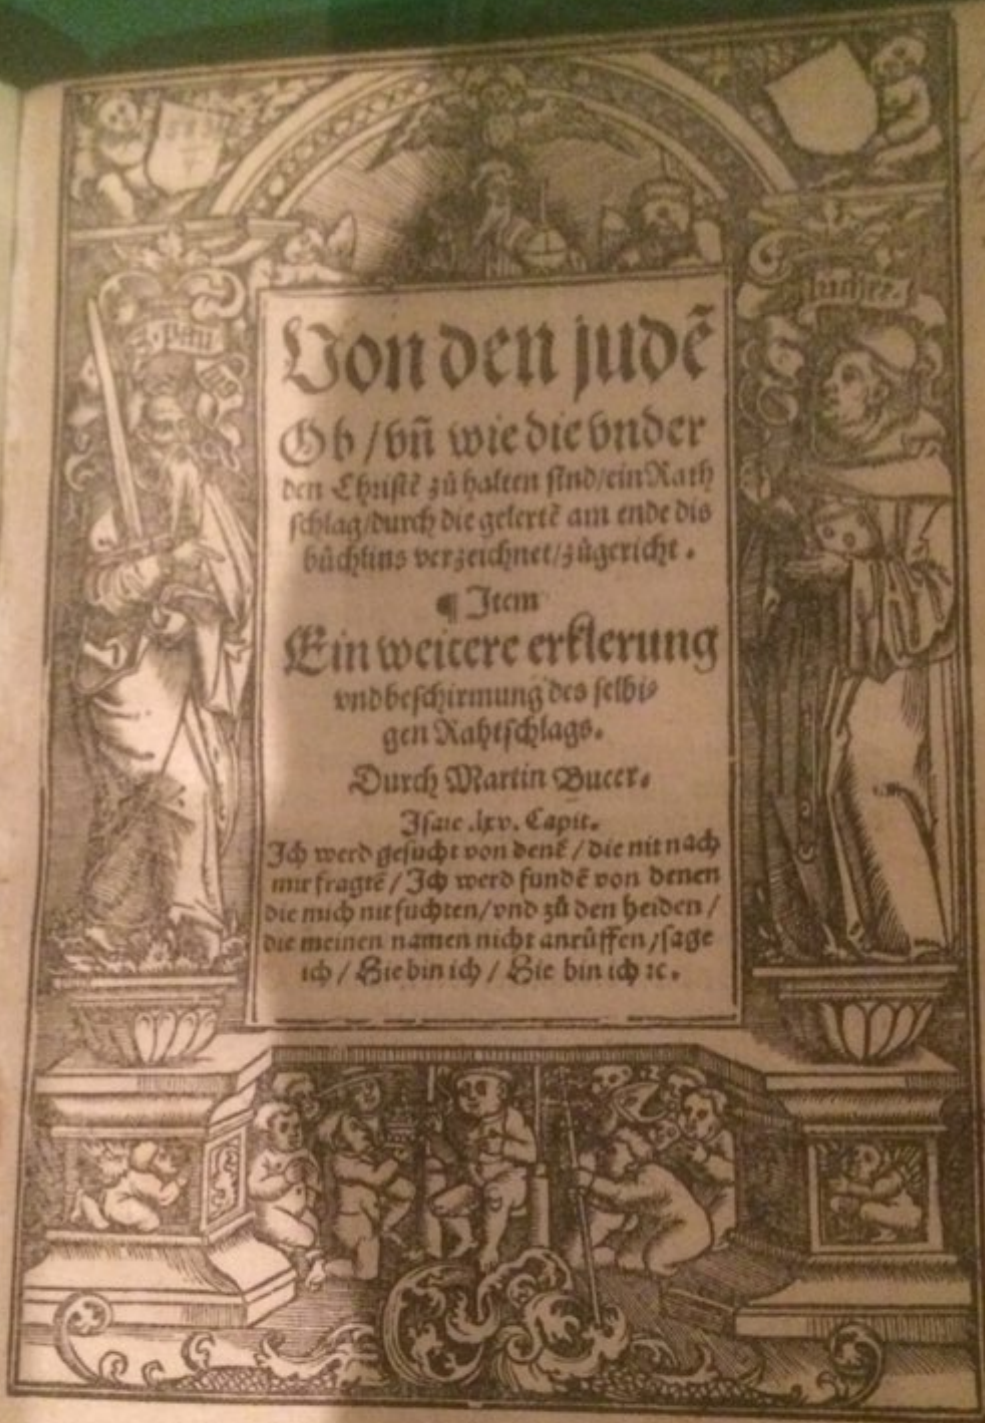 S. Pau
lus
luther.
Von den judẽ
Ob / vñ wie die vnder
den Christẽ zů halten sind / ein Rath
schlag / durch die gelertẽ am ende dis
bůchlins verzeichnet / zůgericht .
¶ Item
Ein weitere erklerung
vnd beschirmung des selbi⸗
gen Rahtschlags.
Durch Martin Bucer.
Isaie .lxv. Capit.
Ich werd gesucht von denẽ / die nit nach
mir fragtẽ / Ich werd fundẽ von denen
die mich nit suchten / vnd zů den heiden /
die meinen namen nicht anrůffen / sage
ich / Hie bin ich / Hie bin ich ꝛc.